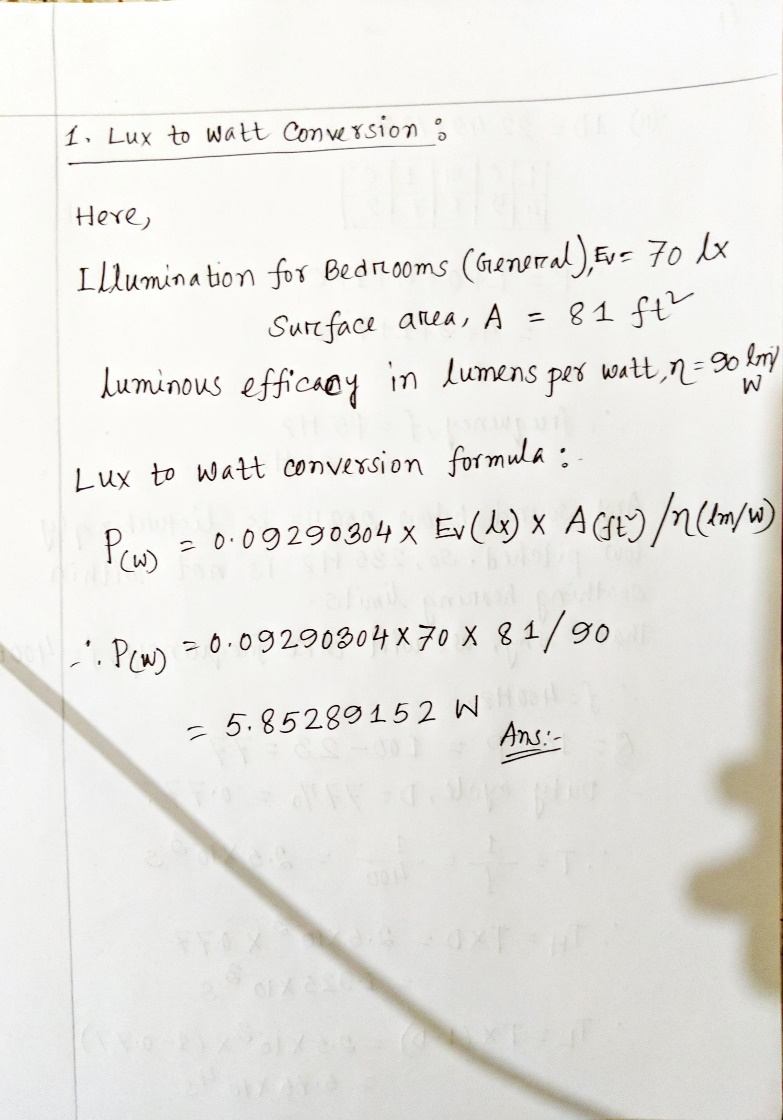 1. Lux to Watt Conversion :
Here,
Illumination for Bedrooms (General), Ev = 70 lx
Surface area, A = 81 ft²
Luminous efficacy in lumens per watt, η = 90 lm/W
Lux to Watt conversion formula :
P(W) = 0.09290304 × Ev(lx) × A(ft²) / η(lm/W)
∴ P(W) = 0.09290304 × 70 × 81 / 90
= 5.85289152 W
Ans:-